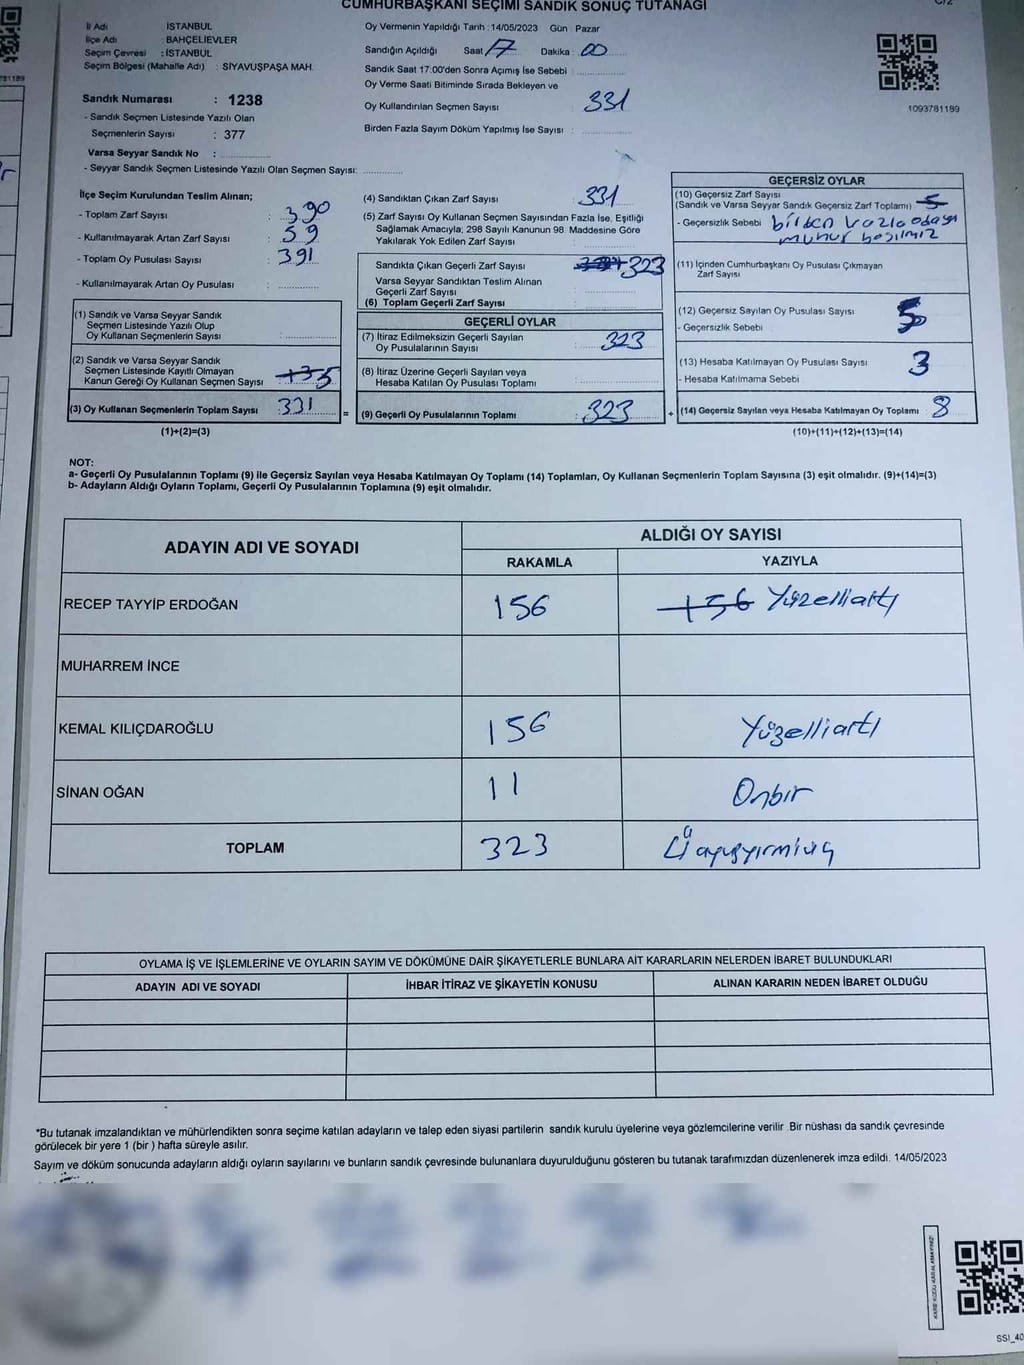 CUMHURBAŞKANI SEÇİMİ SANDIK SONUÇ TUTANAĞI
İl Adı İSTANBUL
İlçe Adı : BAHÇELİEVLER
Seçim Çevresi : İSTANBUL
Seçim Bölgesi (Mahalle Adı) : SİYAVUŞPAŞA MAH.
Sandık Numarası : 1238
- Sandık Seçmen Listesinde Yazılı Olan
Seçmenlerin Sayısı : 377
Varsa Seyyar Sandık No :
- Seyyar Sandık Seçmen Listesinde Yazılı Olan Seçmen Sayısı:
Oy Vermenin Yapıldığı Tarih : 14/05/2023 Gün Pazar
Sandığın Açıldığı Saat 17 Dakika 00
Sandık Saat 17:00'den Sonra Açımış İse Sebebi
Oy Verme Saati Bitiminde Sırada Bekleyen ve
Oy Kullandırılan Seçmen Sayısı 331
Birden Fazla Sayım Döküm Yapılmış İse Sayısı :
1093781189
İlçe Seçim Kurulundan Teslim Alınan;
- Toplam Zarf Sayısı : 390
- Kullanılmayarak Artan Zarf Sayısı : 59
- Toplam Oy Pusulası Sayısı : 391
- Kullanılmayarak Artan Oy Pusulası :
(1) Sandık ve Varsa Seyyar Sandık
Seçmen Listesinde Yazılı Olup
Oy Kullanan Seçmenlerin Sayısı
(2) Sandık ve Varsa Seyyar Sandık
Seçmen Listesinde Kayıtlı Olmayan
Kanun Gereği Oy Kullanan Seçmen Sayısı
(3) Oy Kullanan Seçmenlerin Toplam Sayısı : 331 =
(1)+(2)=(3)
(4) Sandıktan Çıkan Zarf Sayısı : 331
(5) Zarf Sayısı Oy Kullanan Seçmen Sayısından Fazla İse, Eşitliği
Sağlamak Amacıyla, 298 Sayılı Kanunun 98. Maddesine Göre
Yakılarak Yok Edilen Zarf Sayısı
Sandıkta Çıkan Geçerli Zarf Sayısı 323
Varsa Seyyar Sandıktan Teslim Alınan
Geçerli Zarf Sayısı
(6) Toplam Geçerli Zarf Sayısı
GEÇERLİ OYLAR
(7) İtiraz Edilmeksizin Geçerli Sayılan
Oy Pusulalarının Sayısı : 323
(8) İtiraz Üzerine Geçerli Sayılan veya
Hesaba Katılan Oy Pusulası Toplamı
(9) Geçerli Oy Pusulalarının Toplamı : 323 +
GEÇERSİZ OYLAR
(10) Geçersiz Zarf Sayısı
(Sandık ve Varsa Seyyar Sandık Geçersiz Zarf Toplamı) 5
- Geçersizlik Sebebi birden
mühür
(11) İçinden Cumhurbaşkanı Oy Pusulası Çıkmayan
Zarf Sayısı
(12) Geçersiz Sayılan Oy Pusulası Sayısı 5
- Geçersizlik Sebebi
(13) Hesaba Katılmayan Oy Pusulası Sayısı 3
- Hesaba Katılmama Sebebi
(14) Geçersiz Sayılan veya Hesaba Katılmayan Oy Toplamı 8
(10)+(11)+(12)+(13)=(14)
NOT:
a- Geçerli Oy Pusulalarının Toplamı (9) ile Geçersiz Sayılan veya Hesaba Katılmayan Oy Toplamı (14) Toplamları, Oy Kullanan Seçmenlerin Toplam Sayısına (3) eşit olmalıdır. (9)+(14)=(3)
b- Adayların Aldığı Oyların Toplamı, Geçerli Oy Pusulalarının Toplamına (9) eşit olmalıdır.
ADAYIN ADI VE SOYADI
ALDIĞI OY SAYISI
RAKAMLA YAZIYLA
RECEP TAYYİP ERDOĞAN 156 156 Yüzelliahtı
MUHARREM İNCE
KEMAL KILIÇDAROĞLU 156 Yüzelliahtı
SİNAN OĞAN 11 Onbir
TOPLAM 323
OYLAMA İŞ VE İŞLEMLERİNE VE OYLARIN SAYIM VE DÖKÜMÜNE DAİR ŞİKAYETLERLE BUNLARA AİT KARARLARIN NELERDEN İBARET BULUNDUKLARI
ADAYIN ADI VE SOYADI İHBAR İTİRAZ VE ŞİKAYETİN KONUSU ALINAN KARARIN NEDEN İBARET OLDUĞU
*Bu tutanak imzalandıktan ve mühürlendikten sonra seçime katılan adayların ve talep eden siyasi partilerin sandık kurulu üyelerine veya gözlemcilerine verilir .Bir nüshası da sandık çevresinde
görülecek bir yere 1 (bir ) hafta süreyle asılır.
Sayım ve döküm sonucunda adayların aldığı oyların sayılarını ve bunların sandık çevresinde bulunanlara duyurulduğunu gösteren bu tutanak tarafımızdan düzenlenerek imza edildi. 14/05/2023